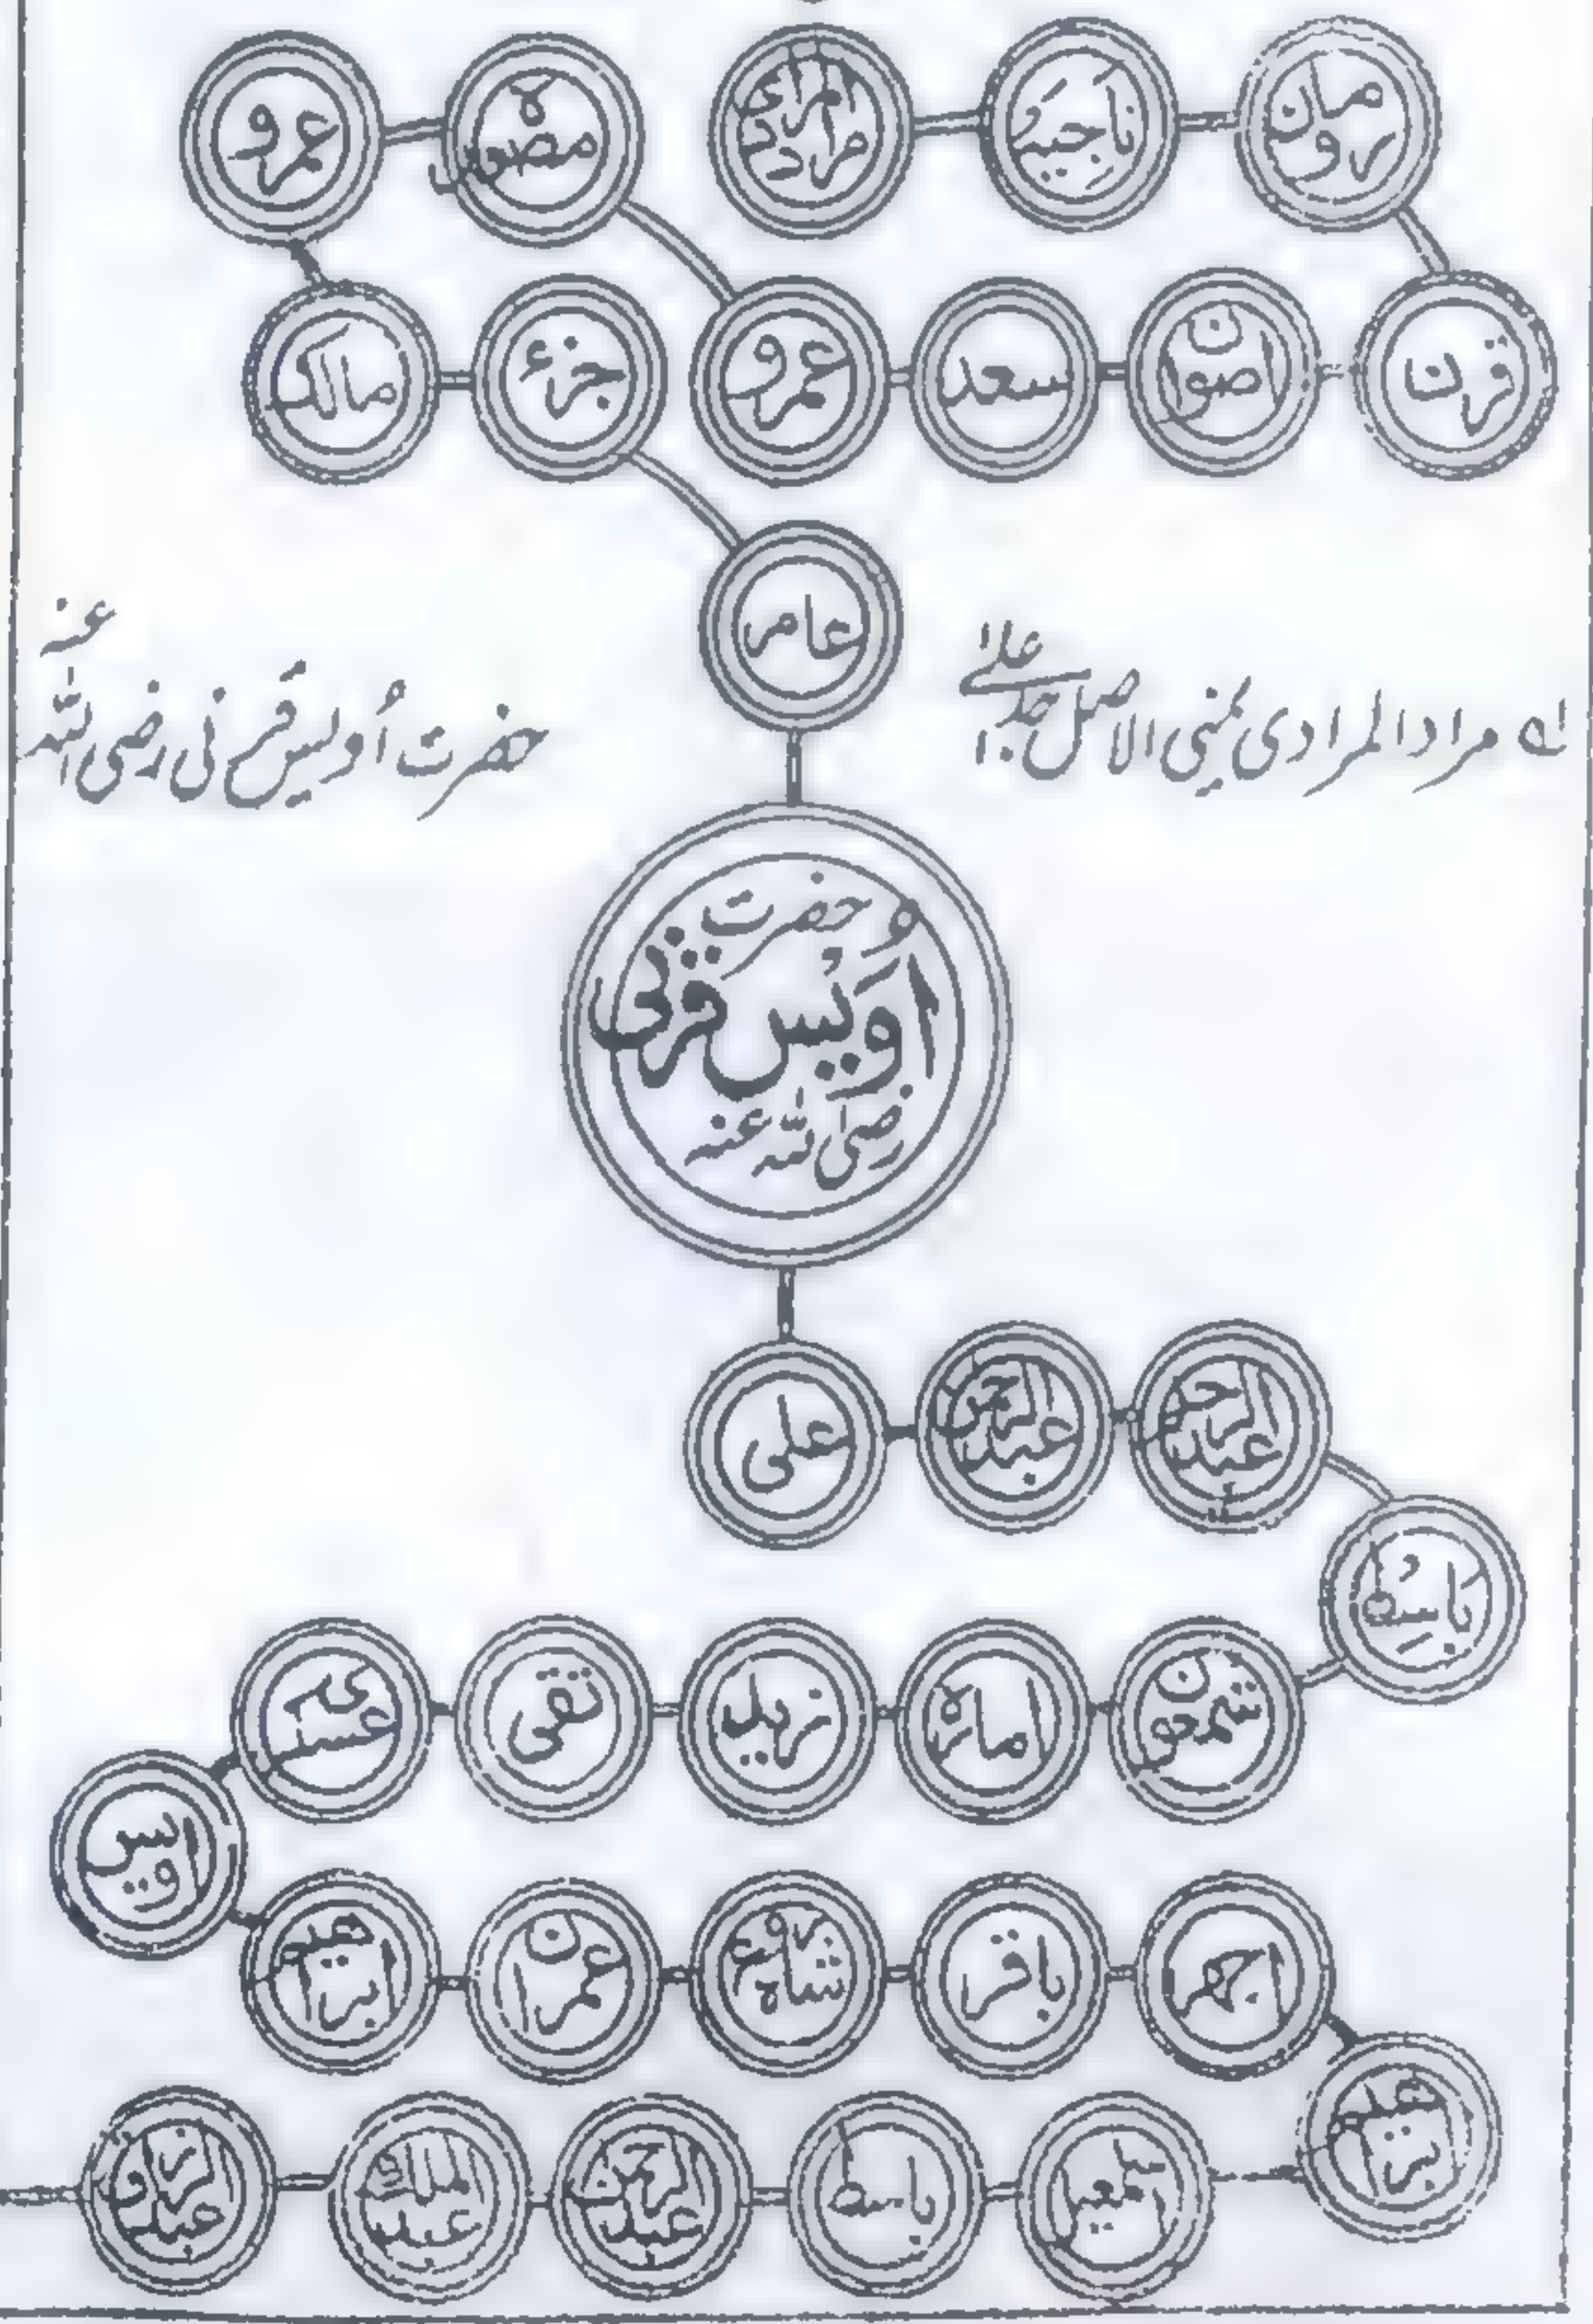 رومان
ناجیہ
المرادی مراد
مصورہ
عمرو
قرن
اصوان
سعد
عمرو
جزء
مالک
عامر
مراد المرادی یمنی الاصل جد اعلیٰ
حضرت اُویس قرنی رضی اللہ عنہ
حضرت
اُویس قرنی
رضی اللہ عنہ
علی
عبد الرحمن
عبد الرحیم
باسط
شمعون
امارہ
تقی
عسکری
اویس
ابراہیم
عمران
شاہ رفیع
باقر
ابراہیم
اسمعیل
باسط
عبد الرحمن
عبد الملک
عبد الرزاق